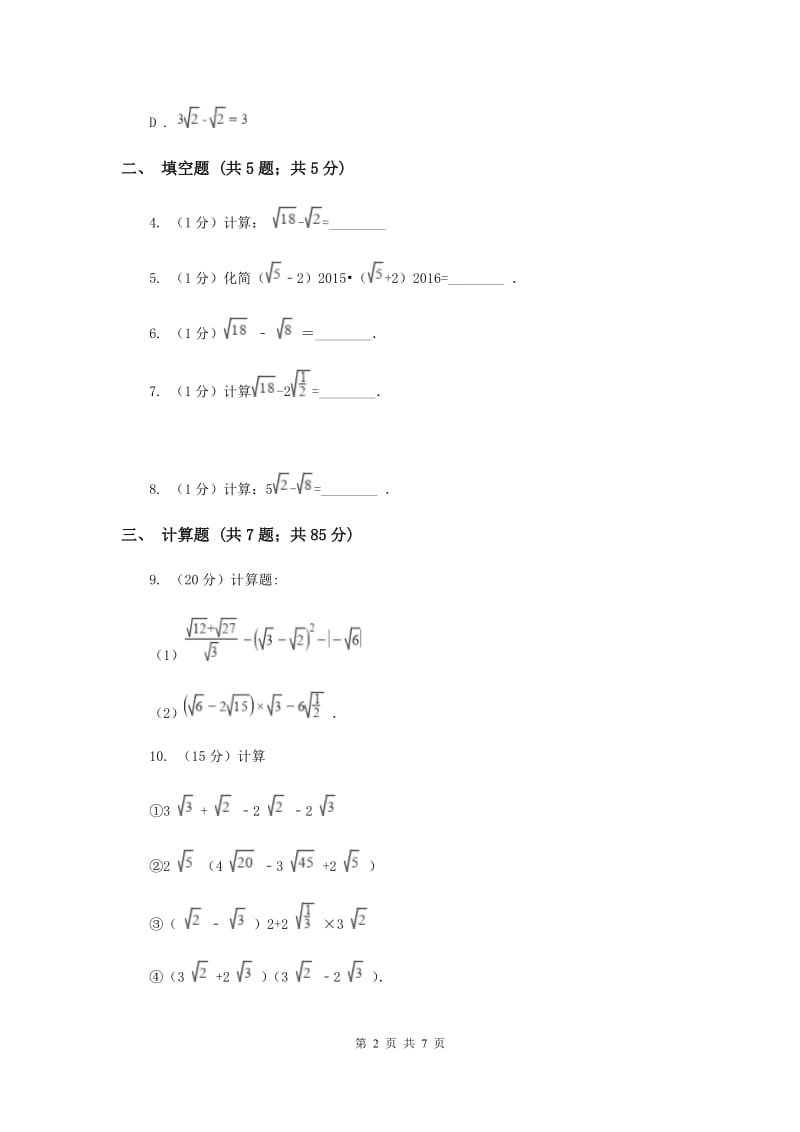 D．3√2-√2=3
二、 填空题 (共 5 题；共 5 分)
4. （1 分）计算： √18-√2=________
5. （1 分）化简（√5﹣2）2015•（√5+2）2016=________ ．
6. （1 分）√18 ﹣ √8 ＝________．
7. （1 分）计算√18-2√(1/2)=________．
8. （1 分）计算；5√2-√8=________ ．
三、 计算题 (共 7 题；共 85 分)
9. （20 分）计算题:
（1）(√12+√27)/√3−(√3−√2)²−|−√6|
（2）(√6−2√15)×√3−6√(1/2) ．
10. （15 分）计算
①3 √3 + √2 ﹣2 √2 ﹣2 √3
②2 √5 （4 √20 ﹣3 √45 +2 √5 ）
③（ √2 ﹣ √3 ）2+2 √(1/3) ×3 √2
④（3 √2 +2 √3 ）（3 √2 ﹣2 √3 ）．
第 2 页 共 7 页